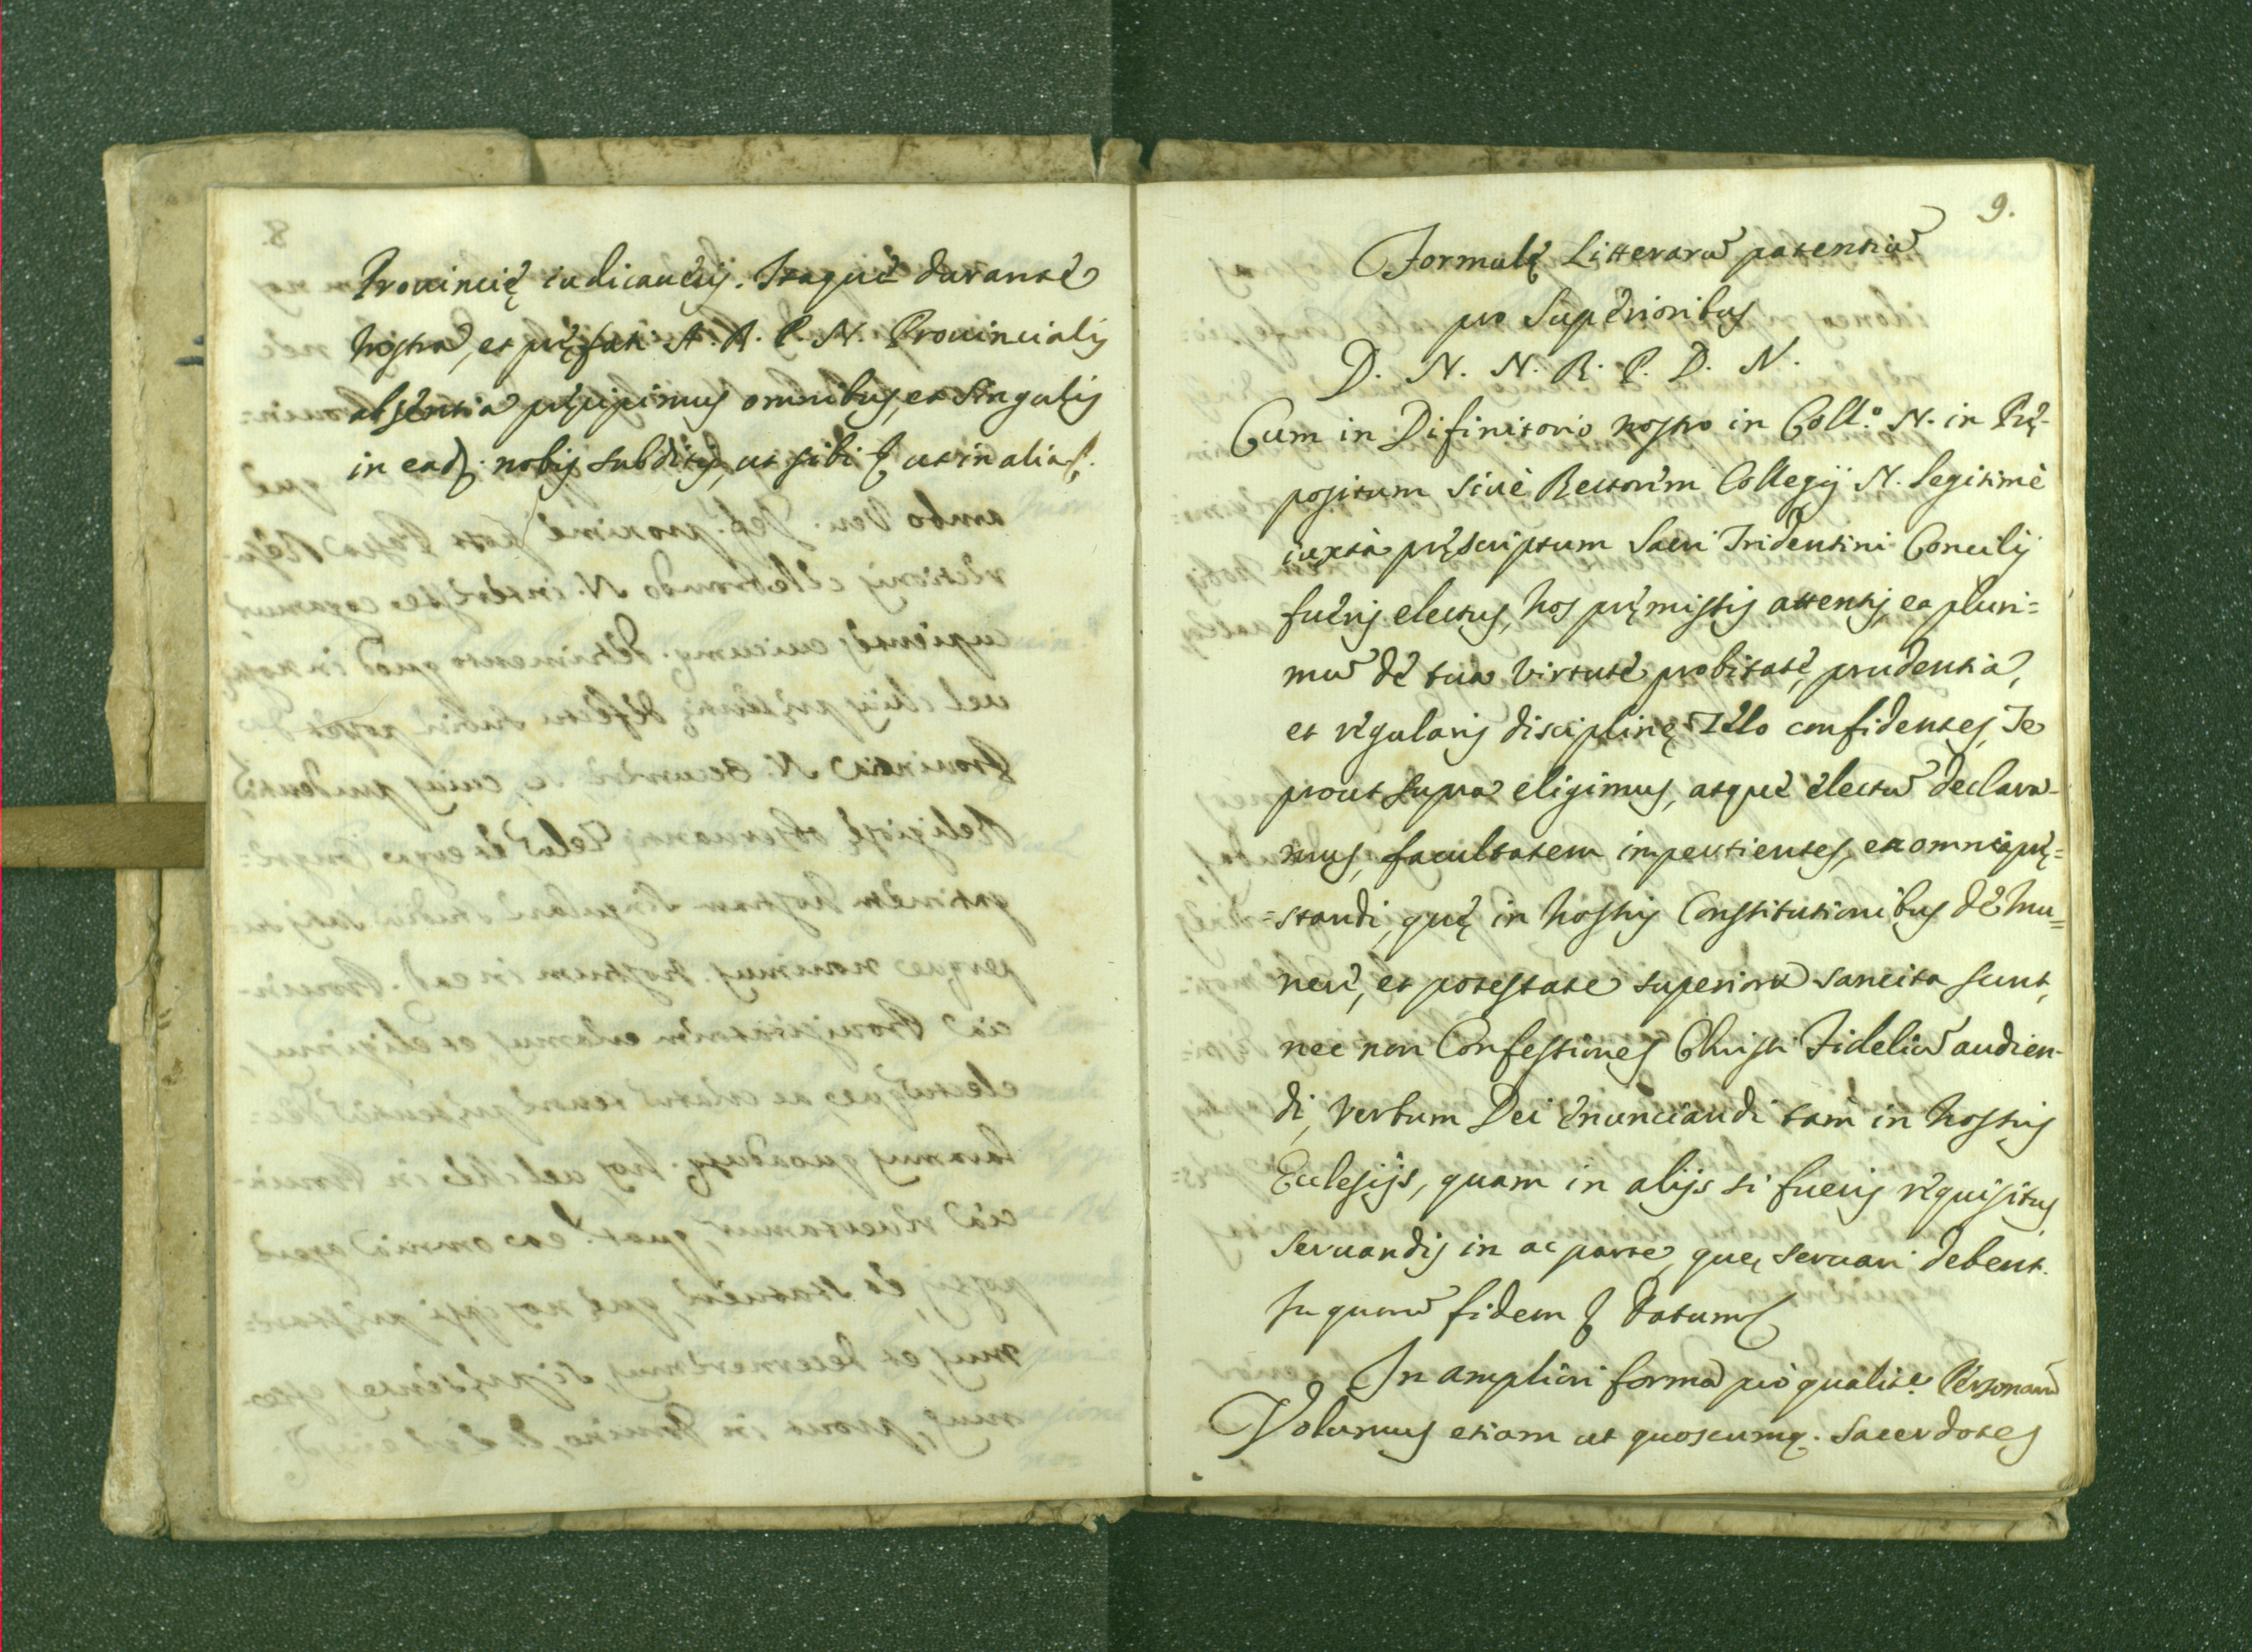 Prouincię iudicauerij. Itaque durante
nostra, et pręfati A. R. P. N. Prouincialis
absentia pręcipimus omnibus, et singulis
in ead. nobis subditis, ut sibi & ut in alia &.
9.
Formulę Litterarũ patentiũ
pro Superioribus
D. N. N. R. P. D. N.
Cum in Difinitorio nostro in Coll.º N. in Prę-
positum siue Rectorem Collegij N. legitimè
iuxta pręscriptum Sacri Tridentini Concilij
fueris electus, Nos pręmissis attentis, ea pluri=
mũ de tua virtute, probitate, prudentia,
et regularis disciplinę Zelo confidentes, Te
prout supra eligimus, atque electũ declara-
mus, facultatem impertientes, ea omnia prę=
=standi, quę in nostris Constitutionibus de mu=
nere, et potestate superiorũ sancita sunt,
nec non Confessiones Christi Fideliũ audien-
di, Verbum Dei enunciandi tam in nostris
Ecclesijs, quam in alijs si fueris requisitus
seruandis in ac parte, quę seruari debent.
In quorũ fidem & Datum &
In ampliori forma pro qualite. Personarũ
Volumus etiam ut quoscumq. Sacerdotes